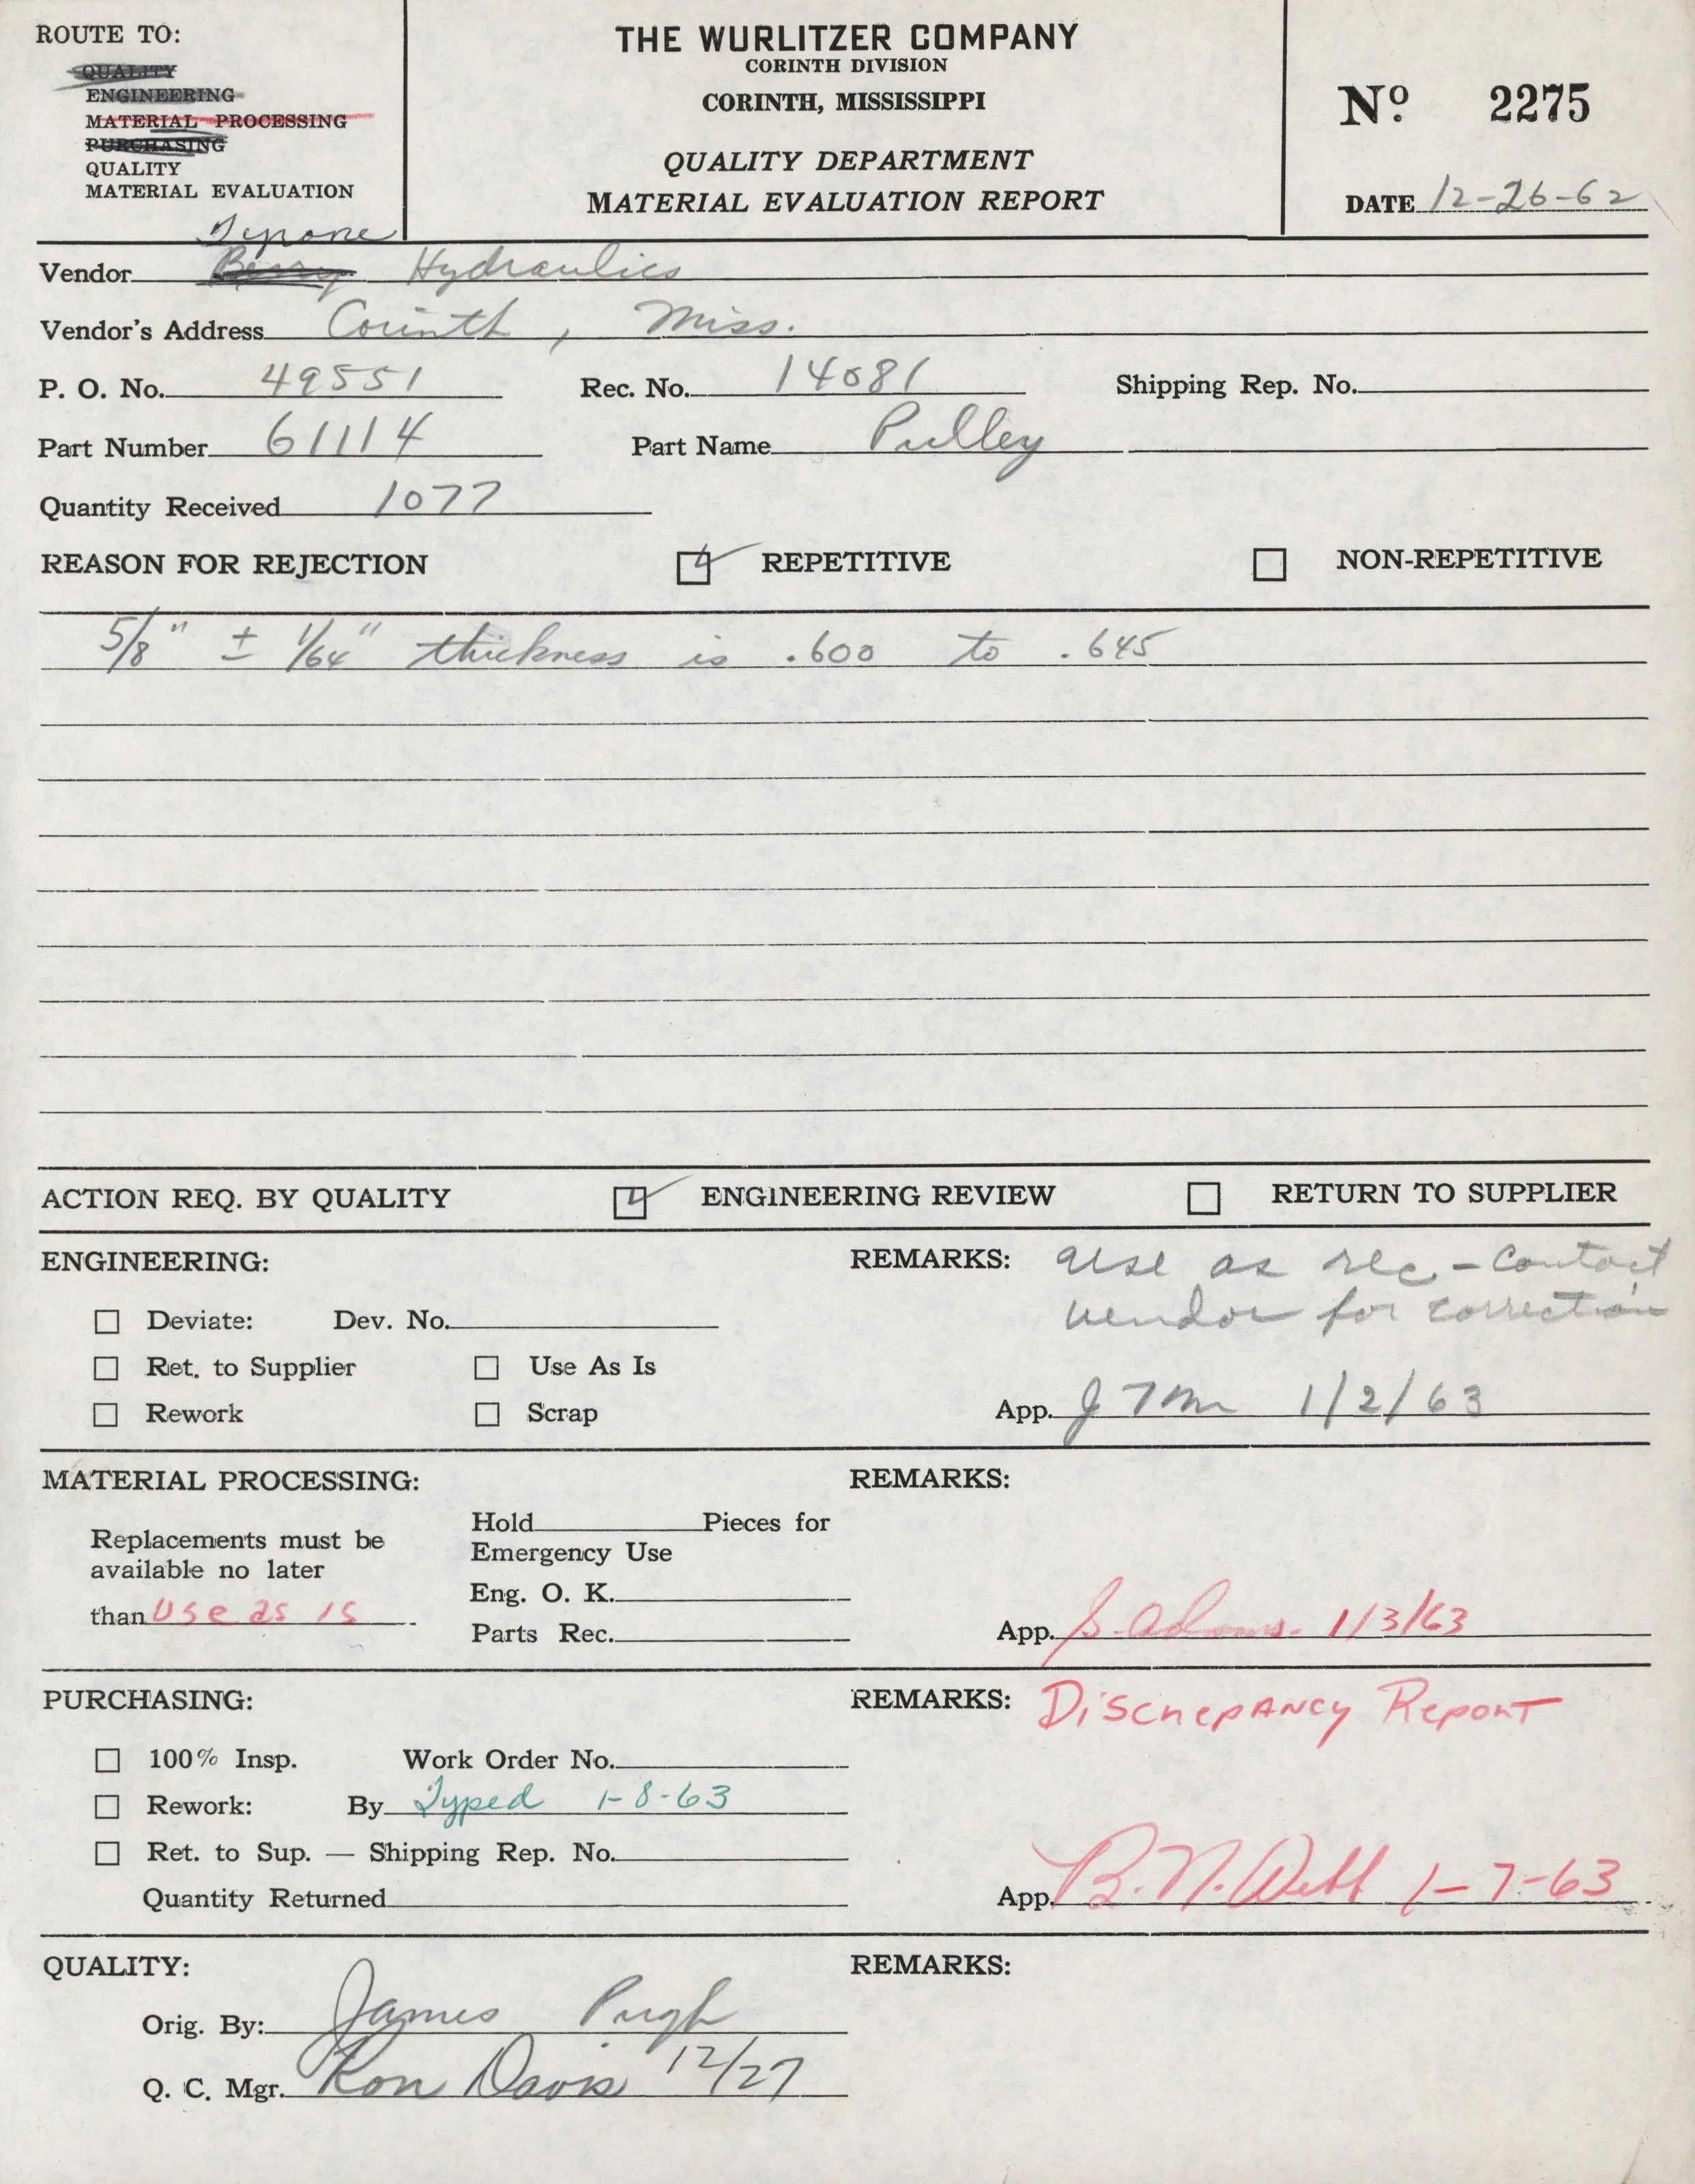 ROUTE TO:
QUALITY
ENGINEERING
MATERIAL PROCESSING
PURCHASING
QUALITY
MATERIAL EVALUATION
THE WURLITZER COMPANY
CORINTH DIVISION
CORINTH, MISSISSIPPI
QUALITY DEPARTMENT
MATERIAL EVALUATION REPORT
Nº 2275
DATE 12-26-62
Vendor Hydraulics
Vendor's Address Corinth, Miss.
P. O. No. 49551 Rec. No. 14081 Shipping Rep. No.
Part Number 61114 Part Name Pulley
Quantity Received 1077
REASON FOR REJECTION REPETITIVE NON-REPETITIVE
5/8" ± 1/64" thickness is .600 to .645
ACTION REQ. BY QUALITY ENGINEERING REVIEW RETURN TO SUPPLIER
ENGINEERING: REMARKS: Use as rec - Contact
vendor for correction
Deviate: Dev. No.
Ret. to Supplier Use As Is
Rework Scrap App. 1/2/63
MATERIAL PROCESSING: REMARKS:
Replacements must be
available no later
than Use as is
Hold Pieces for
Emergency Use
Eng. O. K.
Parts Rec.
App. S. Adams. 1/3/63
PURCHASING: REMARKS: Discrepancy Report
100% Insp. Work Order No.
Rework: By Typed 1-8-63
Ret. to Sup. — Shipping Rep. No.
Quantity Returned App. B. N. Webb 1-7-63
QUALITY: REMARKS:
Orig. By: James Pugh
Q. C. Mgr. Ron Davis 12/27